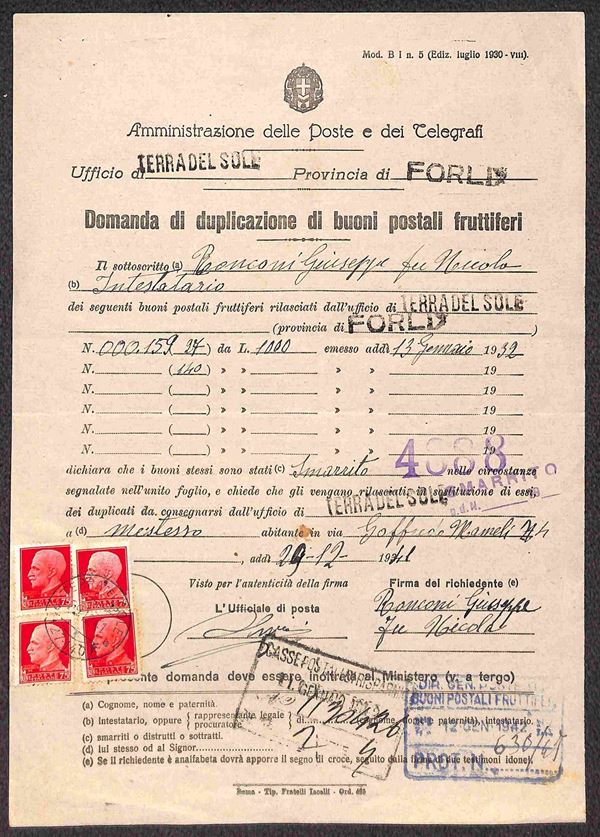 Mod. B I n. 5 (Ediz. luglio 1930 - VIII).
Amministrazione delle Poste e dei Telegrafi
Ufficio di TERRA DEL SOLE Provincia di FORLI
Domanda di duplicazione di buoni postali fruttiferi
Il sottoscritto (a) Ronconi Giuseppe fu Nicola
(b) Intestatario
dei seguenti buoni postali fruttiferi rilasciati dall'ufficio di TERRA DEL SOLE
(provincia di FORLI )
N. 000.159 ( 27 ) da L. 1000 emesso addì 13 Gennaio 1932
N. ( 140 ) » » » » 19
N. ( ) » » » » 19
N. ( ) » » » » 19
N. ( ) » » » » 19
4888
dichiara che i buoni stessi sono stati (c) Smarrito nelle circostanze
SMARRITO
segnalate nell'unito foglio, e chiede che gli vengano rilasciati in sostituzione di essi,
dei duplicati da consegnarsi dall'ufficio di TERRA DEL SOLE
a (d) mestesso abitante in via Goffredo Mameli
, addì 29-12-1941
Visto per l'autenticità della firma Firma del richiedente (e)
L'Ufficiale di posta Ronconi Giuseppe
fu Nicola
CASSE POSTALI RISPARMIO
11. GENNAIO
La presente domanda deve essere inoltrata al Ministero (v. a tergo)
(a) Cognome, nome e paternità.
(b) Intestatario, oppure ( rappresentante legale procuratore ) di (cognome, nome e paternità), intestatario.
(c) smarriti o distrutti o sottratti.
(d) lui stesso od al Signor
(e) Se il richiedente è analfabeta dovrà apporre il segno di croce, seguito dalla firma di due testimoni idonei.
DIR. GEN.
BUONI POSTALI FRUTTIFERI
12 GEN. 1942
PROT. N. 636/61
Roma - Tip. Fratelli Iacelli - Ord.